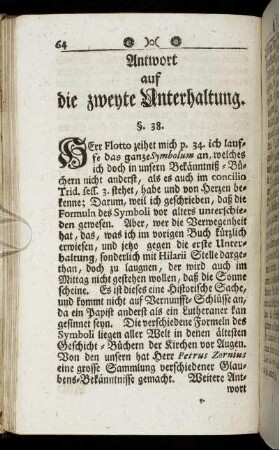 64
Antwort
auf
die zweyte Unterhaltung.
§. 38.
HErr Flotto zeihet mich p. 34. ich lauf-
fe das ganze Symbolum an, welches
ich doch in unsern Bekänntniß-Bü-
chern nicht anderst, als es auch im concilio
Trid. sess. 3. stehet, habe und von Herzen be-
kenne; Darum, weil ich geschrieben, daß die
Formuln des Symboli vor alters unterschie-
den gewesen. Aber, wer die Verwegenheit
hat, das, was ich im vorigen Buch kürzlich
erwiesen, und jetzo gegen die erste Unter-
haltung, sonderlich mit Hilarii Stelle darge-
than, doch zu laugnen, der wird auch im
Mittag nicht gestehen wollen, daß die Sonne
scheine. Es ist dieses eine Historische Sache,
und kommt nicht auf Vernunfft-Schlüsse an,
da ein Papist anderst als ein Lutheraner kan
gesinnet seyn. Die verschiedene Formeln des
Symboli liegen aller Welt in denen ältesten
Geschicht-Büchern der Kirchen vor Augen.
Von den unsern hat Herr Petrus Zornius
eine grosse Sammlung verschiedener Glau-
bens-Bekänntnisse gemacht. Weitere Ant-
wort